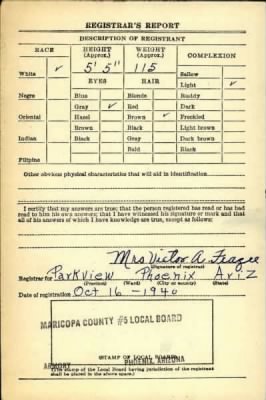 REGISTRAR'S REPORT
DESCRIPTION OF REGISTRANT
RACE HEIGHT (Approx.) WEIGHT (Approx.) COMPLEXION
White ✓ 5' 5" 115 Sallow
EYES HAIR Light ✓
Negro Blue Blonde Ruddy
Gray ✓ Red Dark
Oriental Hazel Brown ✓ Freckled
Brown Black Light brown
Indian Black Gray Dark brown
Bald Black
Filipino
Other obvious physical characteristics that will aid in identification
I certify that my answers are true; that the person registered has read or has had
read to him his own answers; that I have witnessed his signature or mark and that
all of his answers of which I have knowledge are true, except as follows:
Mrs Victor A.
(Signature of registrar)
Registrar for Parkview Phoenix Ariz
(Precinct) (Ward) (City or county) (State)
Date of registration Oct 16 - 1940
MARICOPA COUNTY #5 LOCAL BOARD
ARMORY PHOENIX, ARIZONA
(STAMP OF LOCAL BOARD)
(The stamp of the Local Board having jurisdiction of the registrant
shall be placed in the above space.)